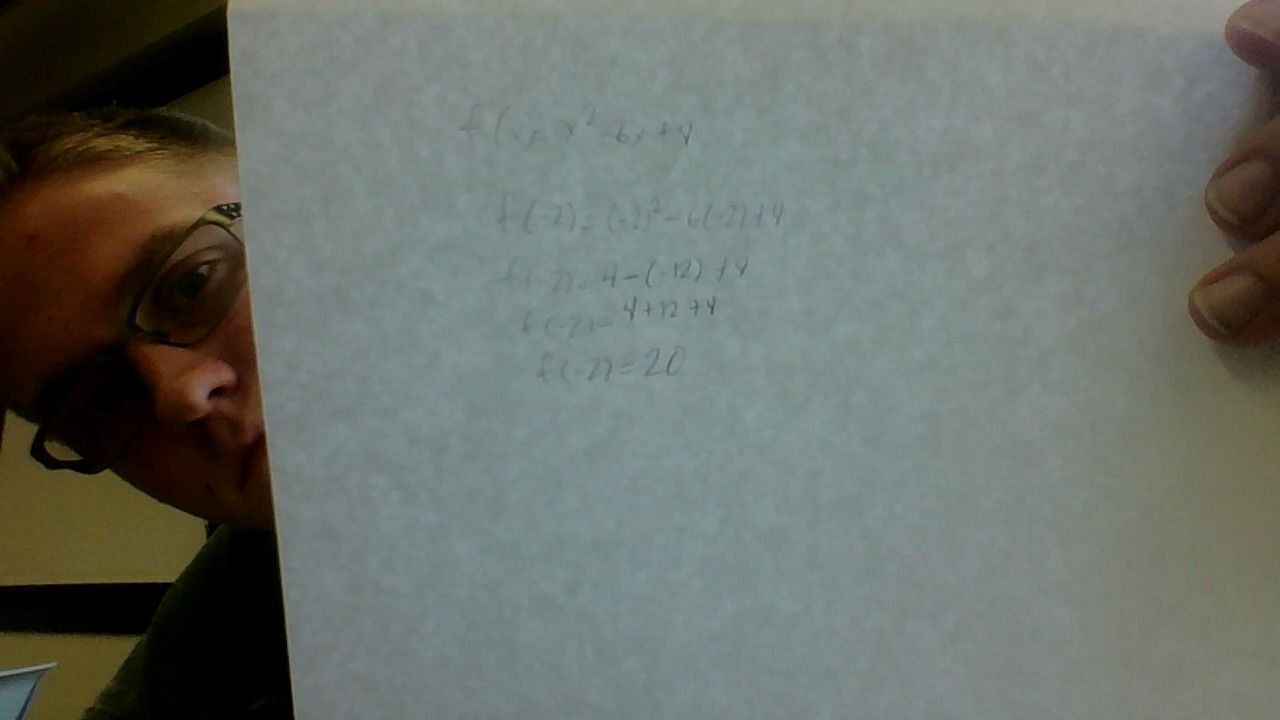 f(x) = x² - 6x + 4
f(-2) = (-2)² - 6(-2) + 4
f(-2) = 4 - (-12) + 4
f(-2) = 4 + 12 + 4
f(-2) = 20